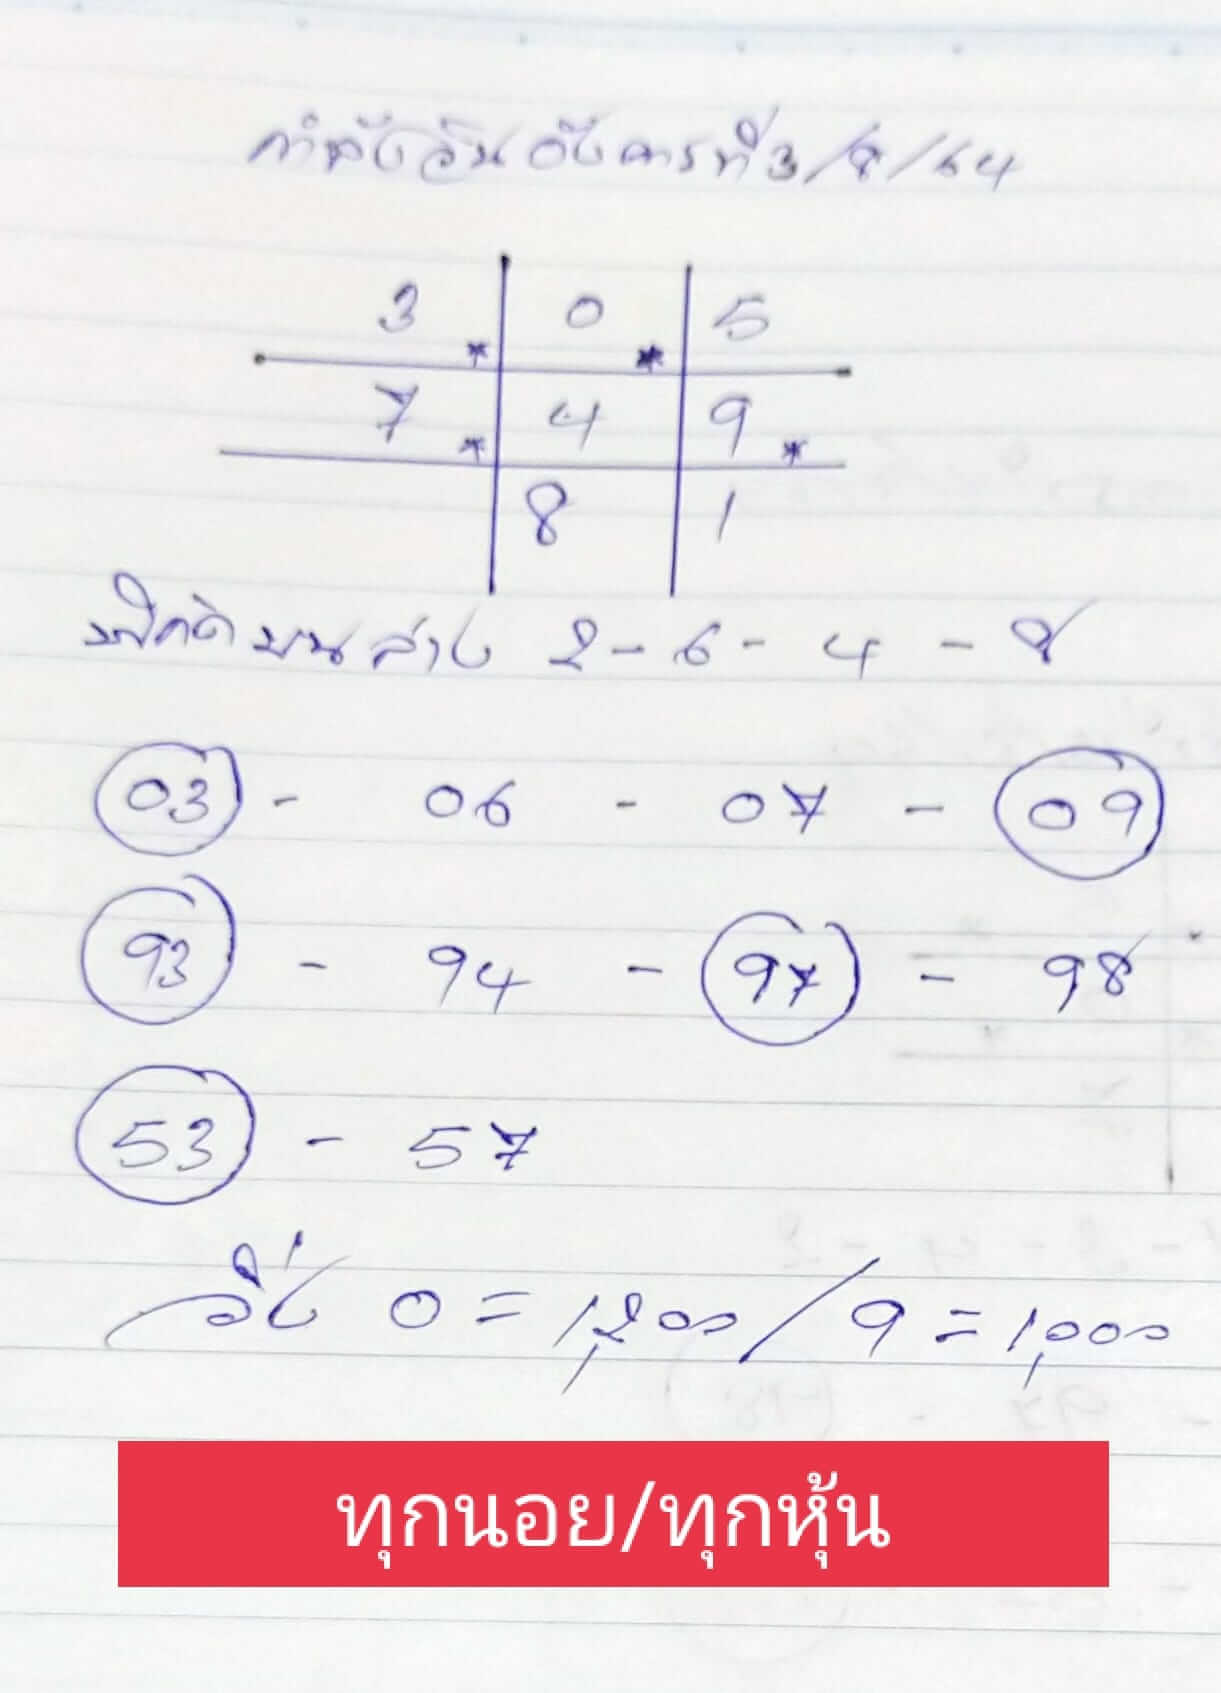 กำลังวันอังคารที่ 3/8/64
3 * 0 * 5
7 * 4 9 *
8 1
พิกัด บน ล่าง 2 - 6 - 4 - 8
03 - 06 - 07 - 09
93 - 94 - 97 - 98
53 - 57
วิ่ง 0 = 1,200 / 9 = 1,000
ทุกนอย/ทุกหุ้น